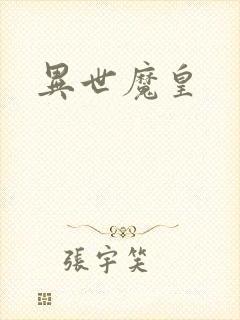 異世魔皇
張宇笑